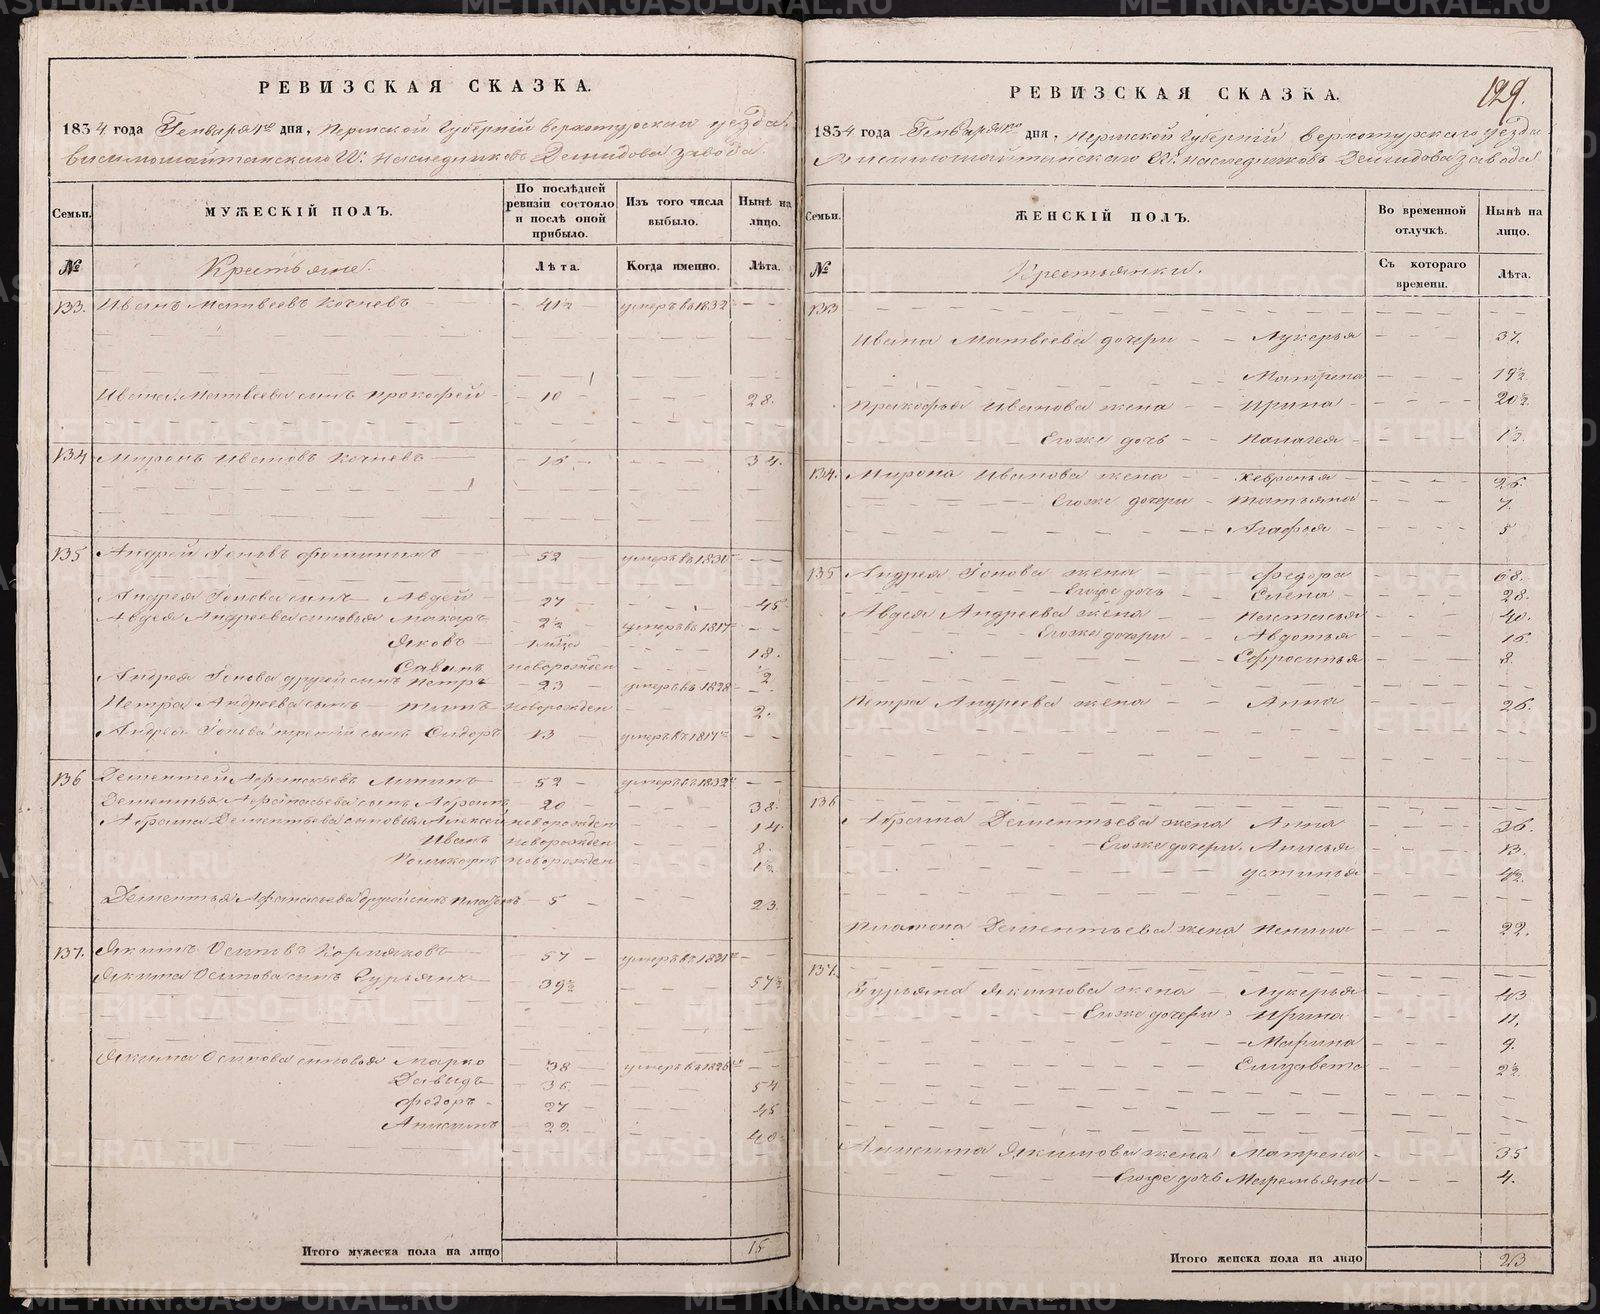 РЕВИЗСКАЯ СКАЗКА.
1834 года Генваря дня, Пермской Губернии Верхотурскаго уезда
Висимошайтанскаго Гг. Наследниковъ Демидова завода
Семьи.
МУЖЕСКІЙ ПОЛЪ.
По послѣдней ревизіи состояло и послѣ оной прибыло.
Изъ того числа выбыло.
Нынѣ на лицо.
№ Крестьяне. Лѣта. Когда именно. Лѣта.
133. Иванъ Матвеевъ Кочневъ 41½ умеръ въ 1832
Ивана Матвеева сынъ Прокофей 10 28.
134 Миронъ Ивановъ Кочневъ 15 34.
135 Андрей Гоповъ 52 умеръ въ 1830
Андрея Гопова сынъ Авдей 27 45
Авдея Андреева сыновья Макаръ 2½ умеръ въ 1817
Яковъ 18.
Савинъ новорожден ½
Андрея Гопова другой сынъ Петръ 23 умеръ въ 1828
Петра Андреева сынъ Титъ новорожден 2.
Андрея Гопова третій сынъ Сидоръ 13 умеръ въ 1817
136 Дементей Афанасьевъ 52 умеръ въ 1832
Дементья Афанасьева сынъ Абрамъ 20 38.
Абрама Дементьева сыновья Алексей новорожден 14.
Иванъ новорожден 8.
Поликарпъ новорожден 1½
Дементья Афанасьева другой сынъ Платонъ 5 23.
137. Якимъ Осиповъ Корняковъ 57 умеръ въ 1821
Якима Осипова сынъ Гурьянъ 39½ 57½
Якима Осипова сыновья Марко 38 умеръ въ 1826
Давыдъ 36 54
Федоръ 27 45
Анисимъ 22 40
Итого мужеска пола на лицо 15
129.
РЕВИЗСКАЯ СКАЗКА.
1834 года Генваря дня, Пермской Губерніи Верхотурскаго уезда
Висимошайтанскаго Гг. Наследниковъ Демидова завода
Семьи.
ЖЕНСКІЙ ПОЛЪ.
Во временной отлучкѣ.
Нынѣ на лицо.
№ Крестьянки. Съ котораго времени. Лѣта.
133
Ивана Матвеева дочери Лукерья 37.
Матрена 19½
Прокофья Иванова жена Ирина 20½
Егоже дочь Палагея
134. Мирона Иванова жена Хевронья 26
Егоже дочери Татьяна 7.
Агафья 5
135 Андрея Гопова жена Федора 68.
Егоже дочь Елена 28.
Авдея Андреева жена Настасья 40.
Егоже дочери Авдотья 15
Ефросинья 8.
Петра Андреева жена Анна 26.
136
Абрама Дементьева жена Анна 36.
Егоже дочери Анисья 13.
Устинья 4½
Платона Дементьева жена Ненила 22.
137.
Гурьяна Якимова жена Лукерья 43
Егоже дочери Ирина 11,
Марина 9.
Елизавета 2½
Анисима Якимова жена Матрена 35
Егоже дочь Маремьяна 4.
Итого женска пола на лицо 23
METRIKI.GASO-URAL.RU